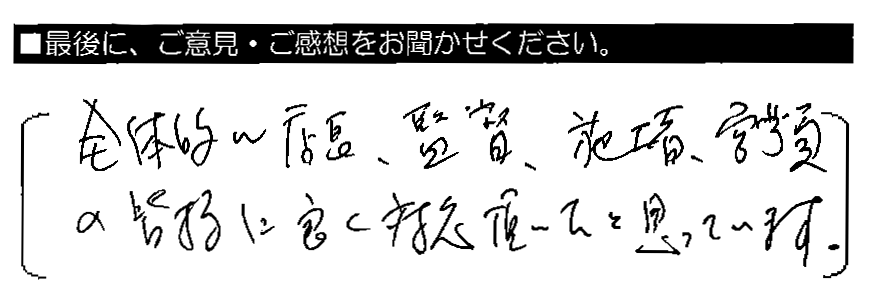 ■最後に、ご意見・ご感想をお聞かせください。
全体的に店長、監督、施工者、営業員
の皆様に良く対応頂いたと思っています。